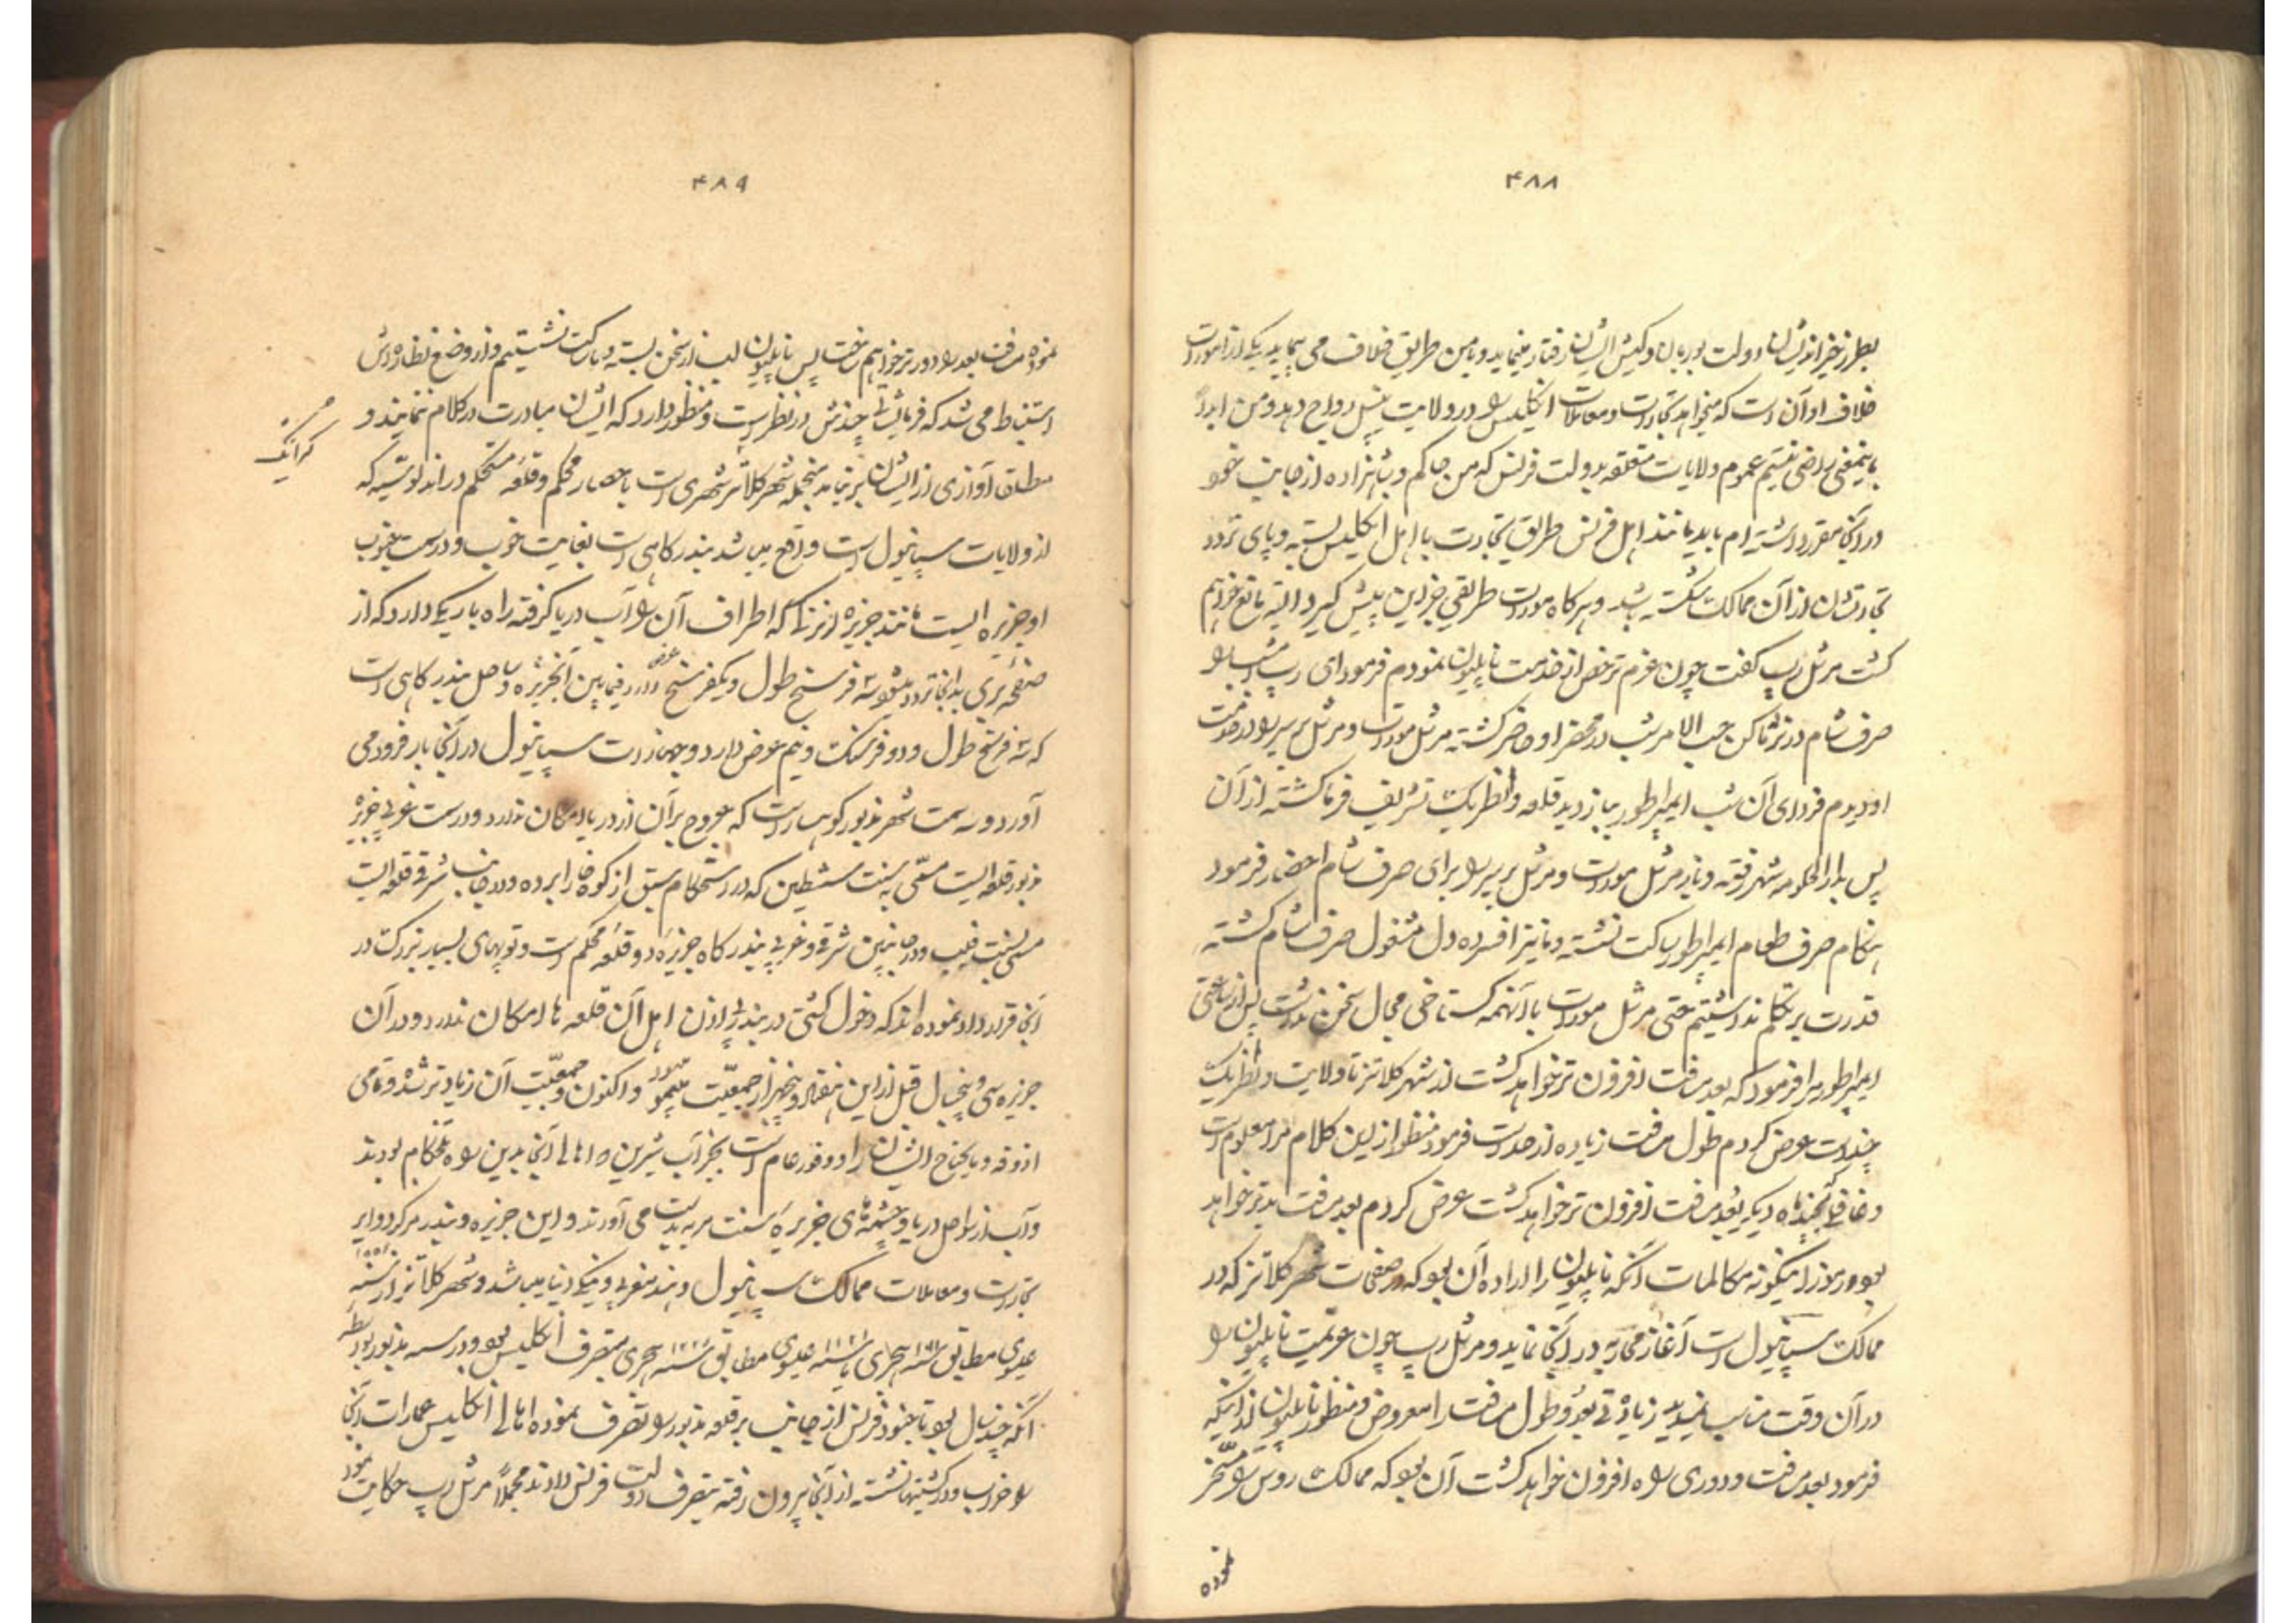 ۴۸۸
بطرز خیراندیشان دولت بوربان و کیش ایشان رفتار مینماید و با من طریق خلاف می پیماید یکی از امورات
خلاف او آن است که میخواهد تجارت و معاملات انگلیس را در ولایت نیپل رواج دهد و من ابداً
باینمعنی راضی نیستم عموم ولایات متعلقه بدولت فرنس که من حاکم و شاهزاده از جانب خود
در آنجا مقرر داشته ام باید مانند اهل فرنس طریق تجارت با اهل انگلیس بسته و پای تردد
تجارتشان از آن ممالک شکسته باشد و هرگاه مورات طریقی جز این پیش گیرد البته مانع خواهم
گشت مرشل رپ گفت چون عزم ترخص از خدمت ناپلیون نمودم فرمود ای رپ امشب را
صرف شام در نزد ما کن حسب الامر شب در محضر او حاضر گشته مرشل مورات و مرشل برییر را در خدمت
او دیدم فردای آن شب ایمپراطور ببازدید قلعه وانظریک تشریف فرما گشته از آن
پس بدارالحکومه شهر رفته و باز مرشل مورات و مرشل برییر را برای صرف شام احضار فرمود
هنگام صرف طعام ایمپراطور ساکت نشسته و ما نیز افسرده دل مشغول صرف شام گشته
قدرت بر تکلم نداشتیم حتی مرشل مورات با آنهمه گستاخی مجال سخن نداشت پس از ساعتی
ایمپراطور مرا فرمود که بعد مسافت افزون تر خواهد گشت از شهر کلاتز تا ولایت وانظریک
چند است عرض کردم طول مسافت زیاده از حد است فرمود منظور از این کلام مرا معلوم است
و غافلی که چند ماه دیگر بعد مسافت افزون تر خواهد گشت عرض کردم بعد مسافت بدتر خواهد
بود و رموز اینگونه مکالمات آنکه ناپلیون را اراده آن بود که در صفحات شهر کلاتز که در
ممالک سپانیول است آغاز محاربه در آنجا نماید و مرشل رپ چون عزیمت ناپلیون را
در آن وقت مناسب نمیدید زیادتی بعد و طول مسافت را معروض و منظور ناپلیون از اینکه
فرمود بعد مسافت و دوری راه افزون خواهد گشت آن بود که ممالک روس را مسخر
نموده
۴۸۹
نموده مسافت بعد را دورتر خواهیم ساخت پس ناپلیون لب از سخن بسته و ساکت نشستیم و از وضع نظاره اش
استنباط می شد که فرمایشات چندش در نظر است و منظور دارد که ایشان مبادرت در کلام ننمایند و
مطلق آوازی از ایشان برنیاید منجمله شهر کلاتز شهری است با حصار محکم و قلعه مستحکم در اندلوشیه که
از ولایات سپانیول است واقع میباشد بندرگاهی است بغایت خوب و در سمت جنوب
او جزیره ایست مانند جزیره که اطراف آن را آب دریا گرفته راه باریکی دارد که از
صفحه بری بدانجا تردد میشود سه فرسخ طول و یکفرسخ عرض دارد فیمابین آنجزیره و ساحل بندرگاهی است
که سه فرسخ طول و دو فرسنگ و نیم عرض دارد و جهازات سپانیول در آنجا بار فرود می
آورد و سه سمت شهر مذبور کوهسار است که عروج بر آن از دریا امکان ندارد و در سمت غربی جزیره
مذبور قلعه ایست مسمی به سنت سبشطین که در استحکام سبق از کوه خارا برده و در جانب شرقی قلعه ایست
مسمی بسنت فیلپ و در جانبین شرقی و غربی بندرگاه جزیره دو قلعه محکم است و توپهای بسیار بزرگ در
آنجا قرار داد نموده اند که دخول کشتی در بندر بی اذن اهل آن قلعه ها امکان ندارد و در آن
جزیره سی و پنجسال قبل از این هفتاد و پنجهزار جمعیت و اکنون جمعیت آن زیادتر شده و تمامی
آذوقه و مایحتاج ایشان را وفور عام است بجز آب شیرین که اهالی آنجا بدین سبب تلخکام بودند
و آب از سواحل دریا و چشمه های جزیره سنت مریه بدست می آورند و این جزیره و بندر مرکز دوایر
تجارت و معاملات ممالک سپانیول و هند مغربی و ینگی دنیا میباشد و شهر کلاتز در سنه
عیسوی مطابق سنه هجری یا سنه عیسوی مطابق سنه هجری متصرف انگلیس بود و در سنه مذبور
آنکه چند سال بود تا جنود فرنس از جانب بر قلعه مذبور را تصرف نموده اهالی انگلیس عمارات آنجا
را خراب و در کشتیها نشسته از آنجا بیرون رفته بتصرف دولت فرنس دادند مجملاً مرشل رپ حکایت نمود